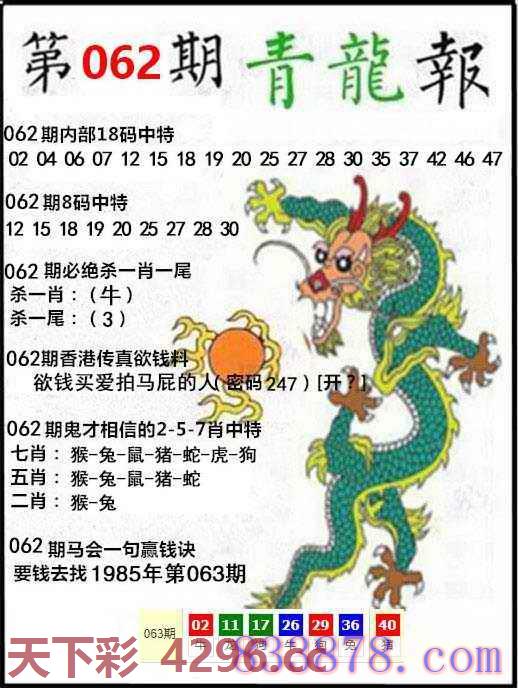 第062期青龍報
062期内部18码中特
02 04 06 07 12 15 18 19 20 25 27 28 30 35 37 42 46 47
062期8码中特
12 15 18 19 20 25 27 28 30
062期必绝杀一肖一尾
杀一肖:(牛)
杀一尾:(3)
062期香港传真欲钱料
欲钱买爱拍马屁的人(密码247)[开?]
062期鬼才相信的2-5-7肖中特
七肖:猴-兔-鼠-猪-蛇-虎-狗
五肖:猴-兔-鼠-猪-蛇
二肖:猴-兔
062期马会一句赢钱诀
要钱去找1985年第063期
063期 02 11 17 26 29 36 40
牛 龙 狗 牛 狗 兔 猪
天下彩 4296.cc
838878.com